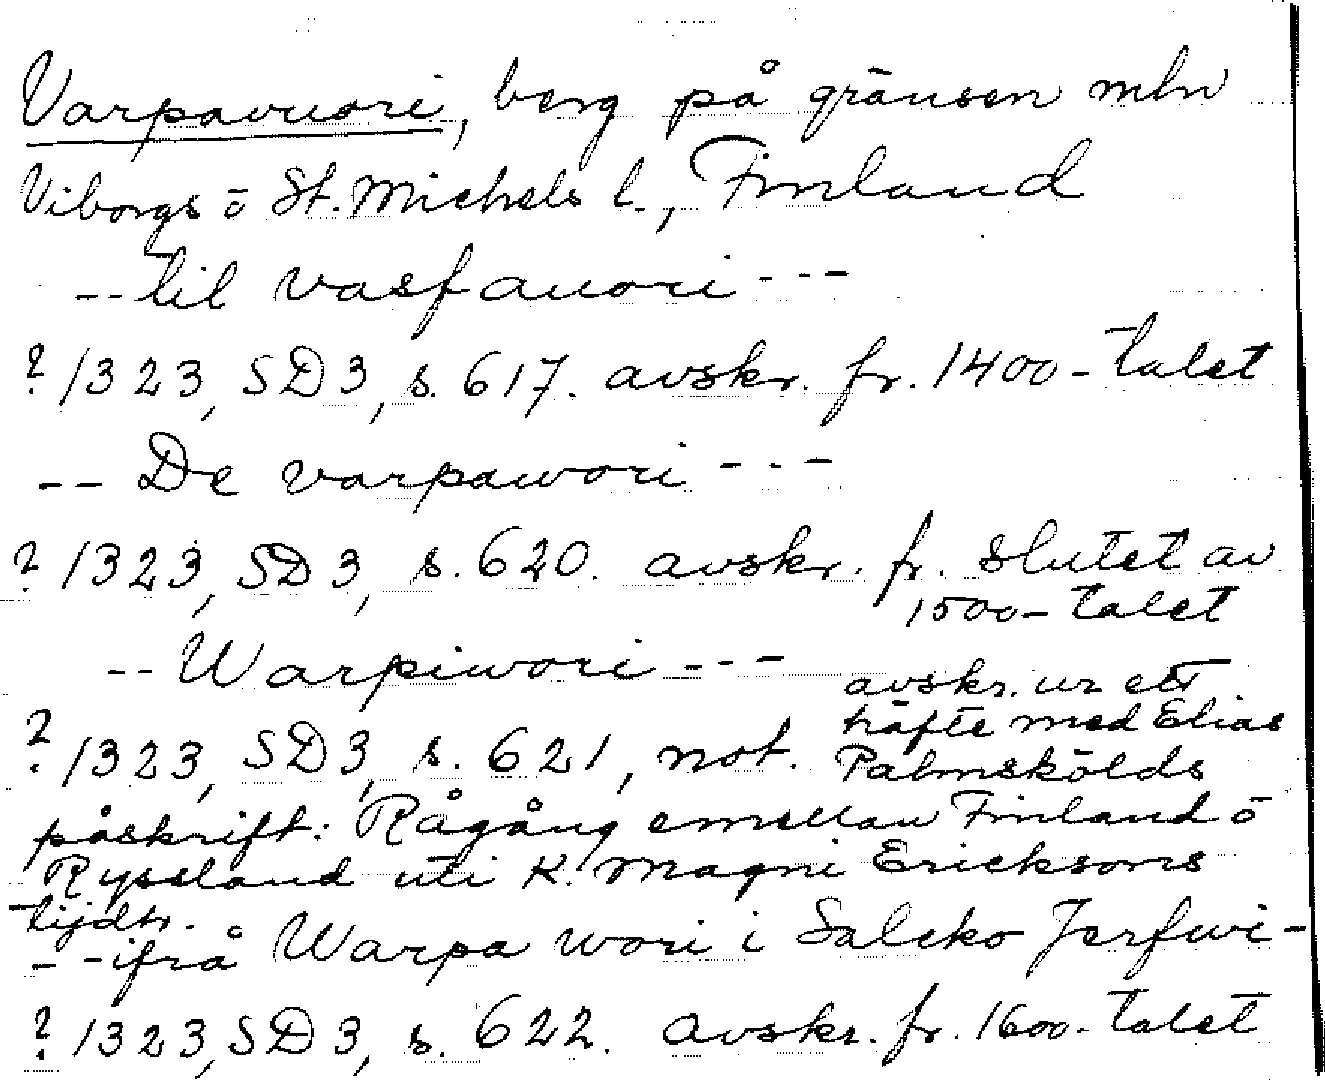 Varpavuori, berg på gränsen mln
Viborgs ō St. Michels l., Finland
-- til vasfauori ---
? 1323, SD3, s. 617. avskr. fr. 1400-talet
-- De varpawori ---
? 1323, SD3, s. 620. avskr. fr. slutet av
1500-talet
-- Warpiwori ---
avskr. ur ett
häfte med Elias
? 1323, SD3, s. 621, not. Palmskölds
påskrift: Rågång emellan Finland ō
Ryssland uti K. Magni Ericksons
tijdh.
-- ifrå Warpa wori i Saleko Jerfwi-
? 1323, SD3, s. 622. avskr. fr. 1600-talet